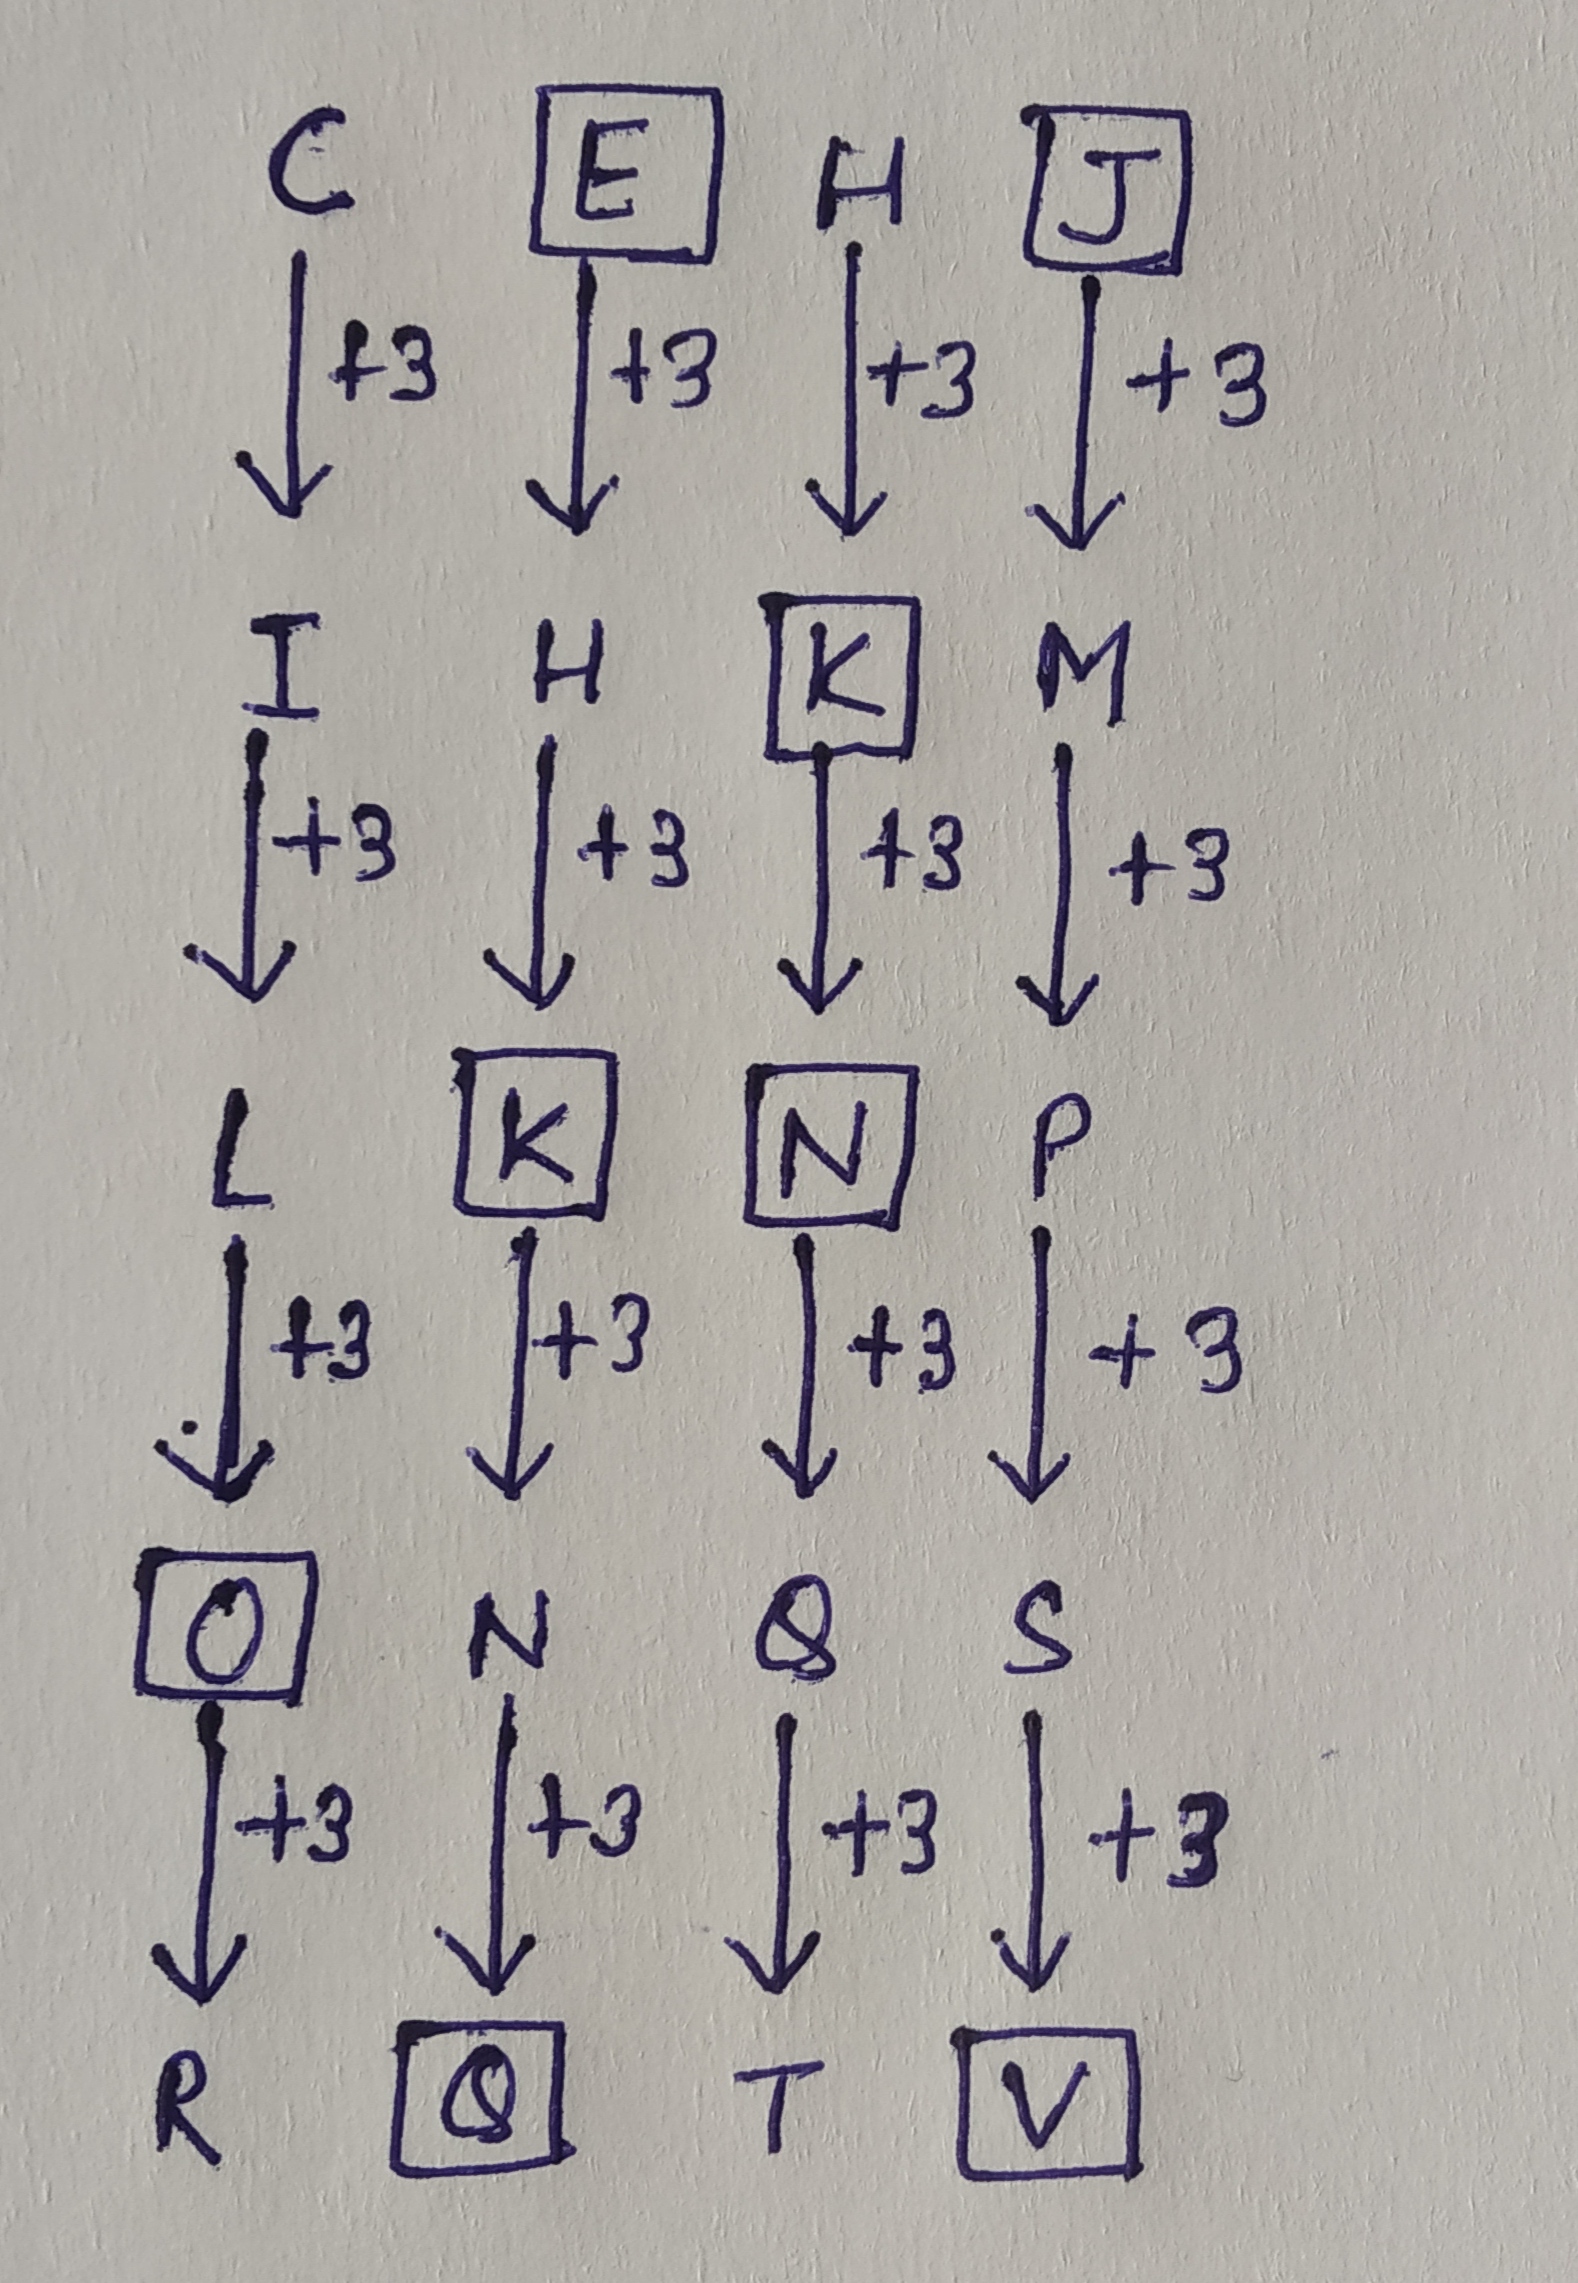 C E H J
+3 +3 +3 +3
I H K M
+3 +3 +3 +3
L K N P
+3 +3 +3 +3
O N Q S
+3 +3 +3 +3
R Q T V